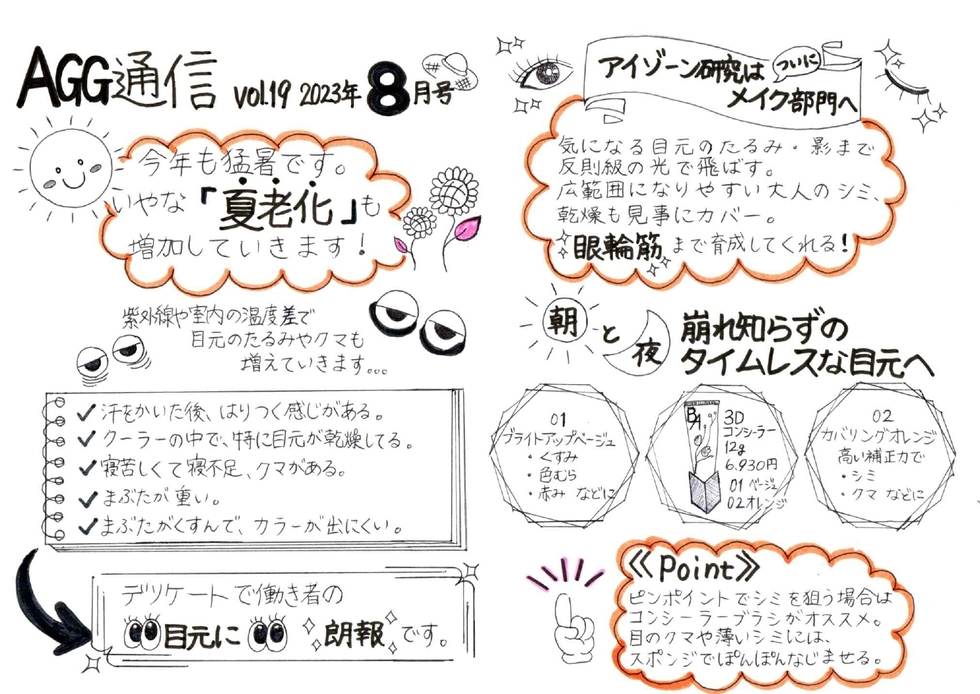 AGG通信 vol.19 2023年8月号
今年も猛暑です。
いやな「夏老化」も
増加していきます！
紫外線や室内の温度差で
目元のたるみやクマも
増えていきます...
✓汗をかいた後、はりつく感じがある。
✓クーラーの中で、特に目元が乾燥してる。
✓寝苦しくて寝不足、クマがある。
✓まぶたが重い。
✓まぶたがくすんで、カラーが出にくい。
デリケートで働き者の
目元に朗報です。
アイゾーン研究はついに
メイク部門へ
気になる目元のたるみ・影まで
反則級の光で飛ばす。
広範囲になりやすい大人のシミ、
乾燥も見事にカバー。
眼輪筋まで育成してくれる！
朝と夜
崩れ知らずの
タイムレスな目元へ
01
ブライトアップベージュ
・くすみ
・色むら
・赤み などに
BA
3D
コンシーラー
12g
6.930円
01 ベージュ
02オレンジ
02
カバリングオレンジ
高い補正力で
・シミ
・クマ などに
《Point》
ピンポイントでシミを狙う場合は
コンシーラーブラシがオススメ。
目のクマや薄いシミには、
スポンジでぽんぽんなじませる。